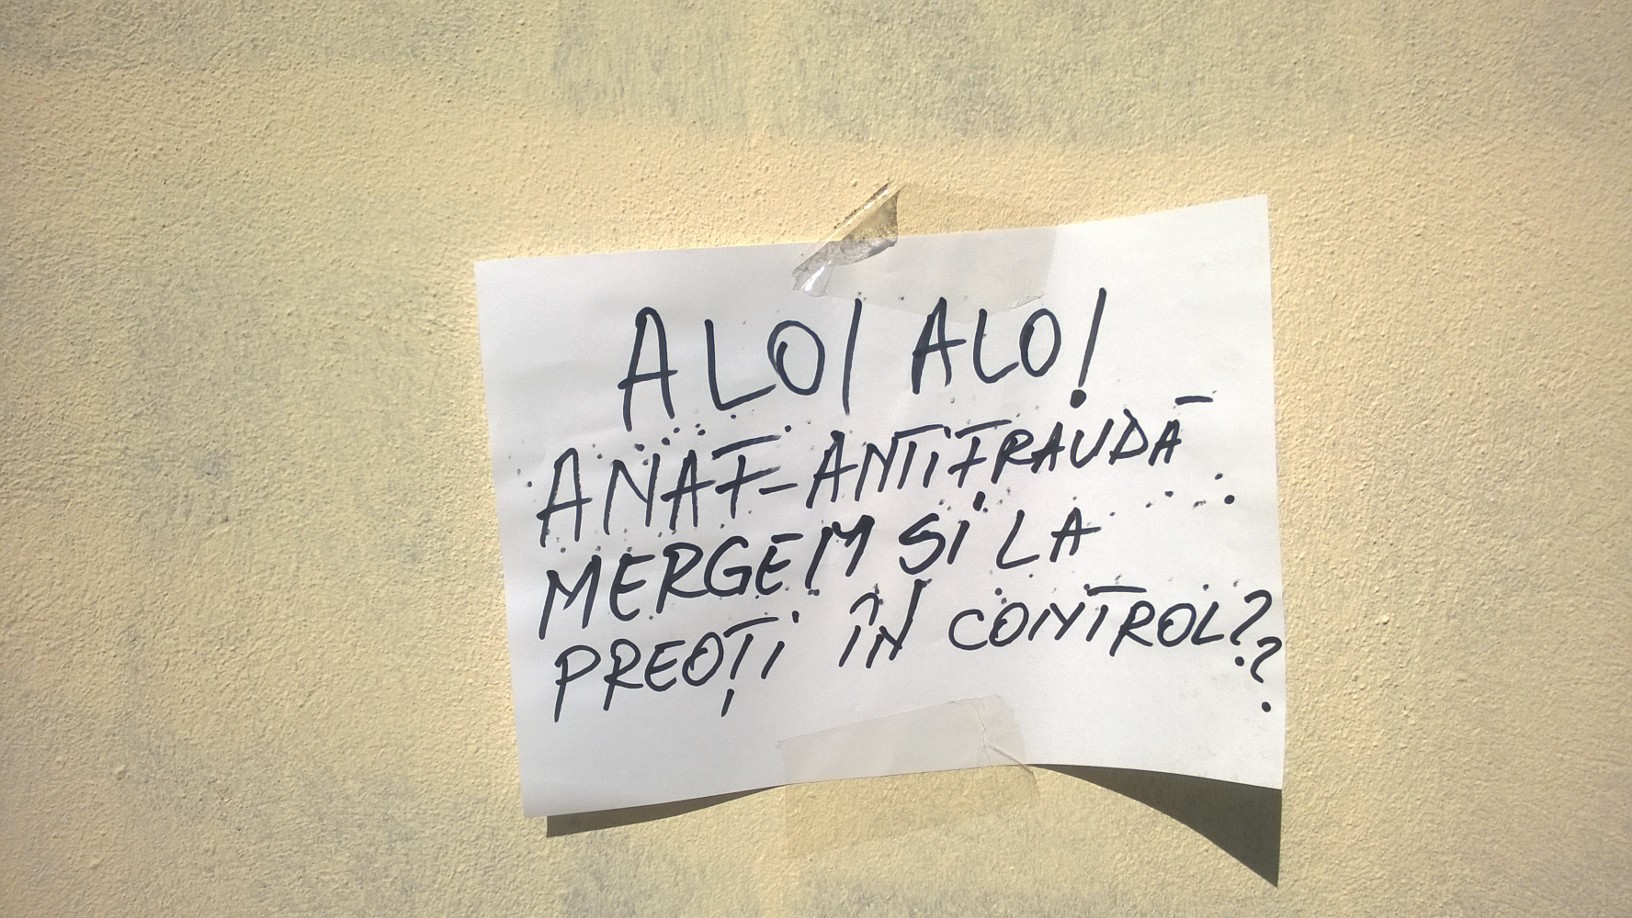 ALO! ALO!
ANAF-ANTIFRAUDĂ
MERGEM SI LA
PREOȚI ÎN CONTROL??